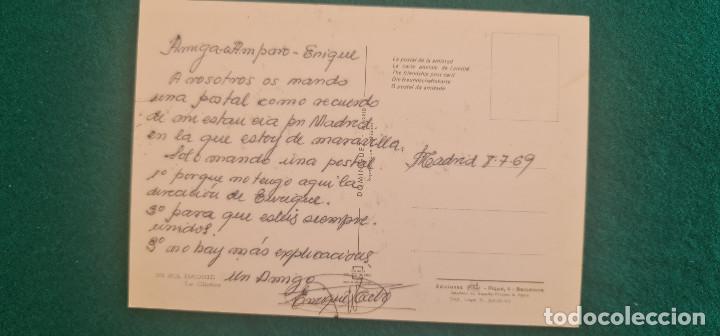 Amiga Amparo - Enrique
A vosotros os mando
una postal como recuerdo
de mi estancia en Madrid
en la que estoy de maravilla.
Solo mando una postal
1º porque no tengo aqui la
dirección de Enrique.
2º para que esteis siempre
unidos.
3º no hay más explicacions
Un Amigo
Enrique
La postal de la amistad
La carte postale de l'amitié
The friendship post card
Die Freundschaftskarte
Il postal da amizade
Madrid 8-7-69
DOMINGUEZ
MADRID
La Cibeles
Ediciones
Barcelona